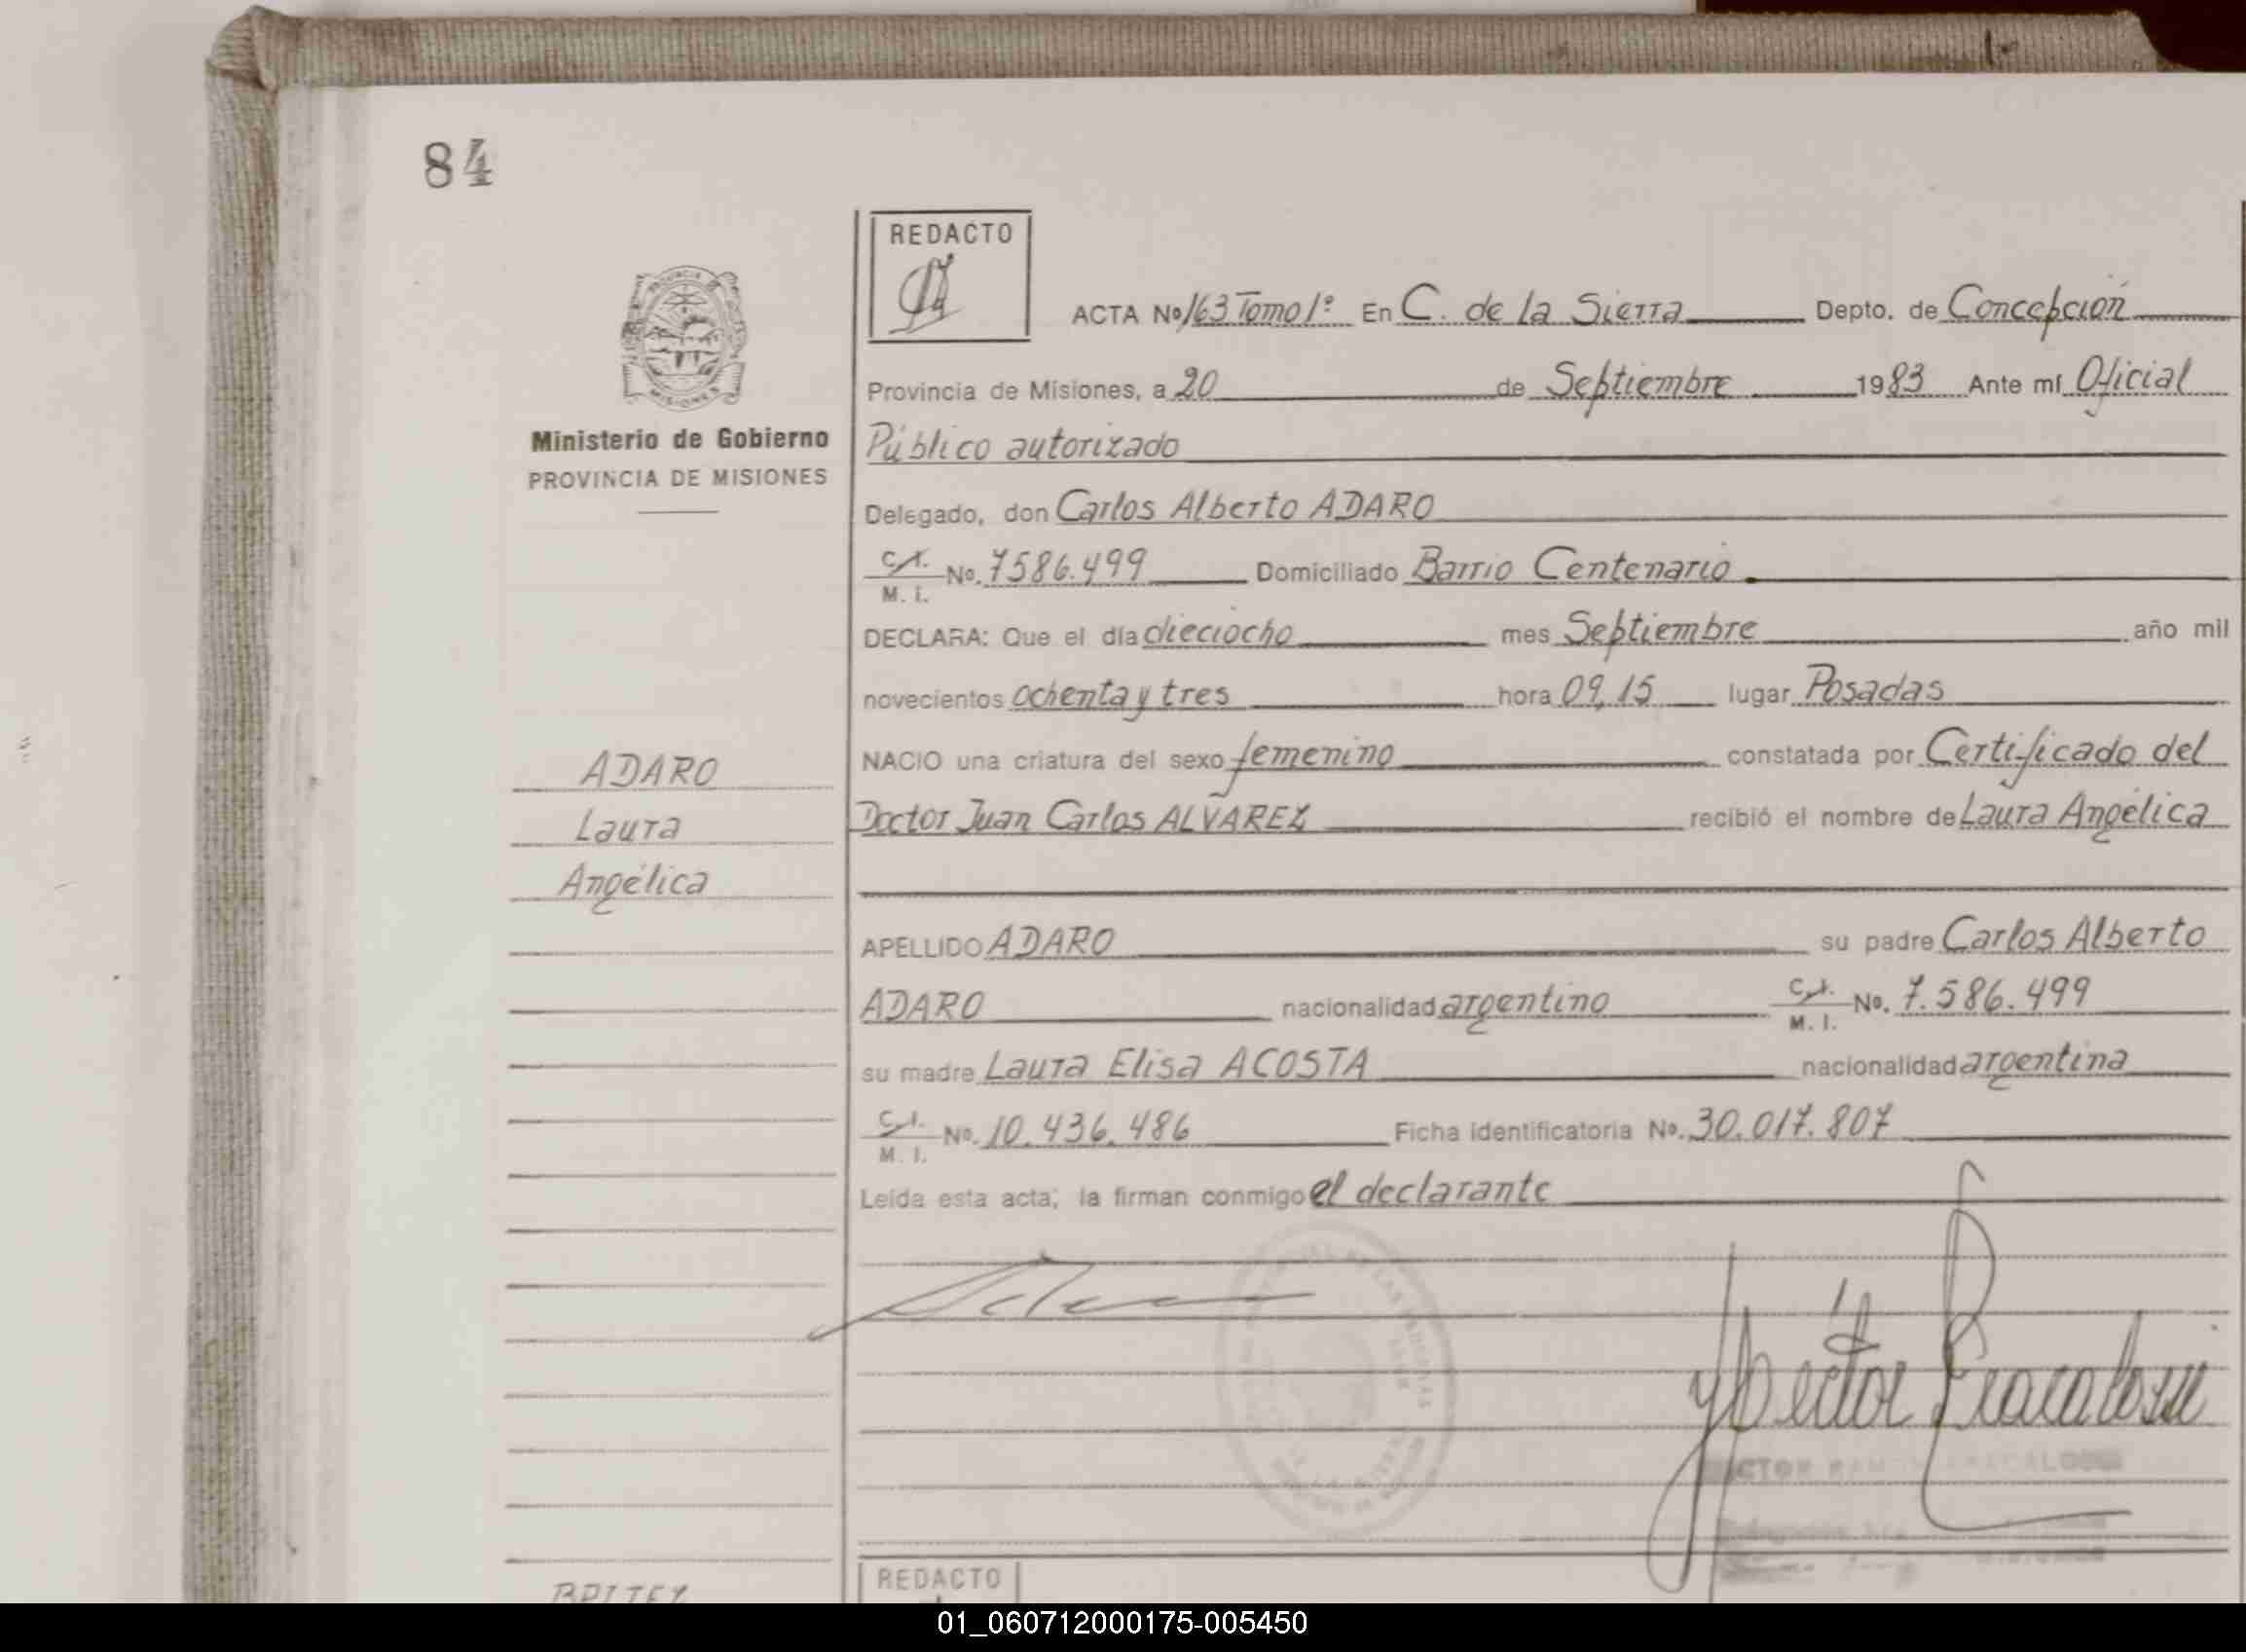 84
REDACTO
ACTA No 163 Tomo 1º En C. de la Sierra Depto. de Concepción
Provincia de Misiones, a 20 de Septiembre 1983 Ante mí Oficial
Ministerio de Gobierno
Público autorizado
PROVINCIA DE MISIONES
Delegado, don Carlos Alberto ADARO
C.I. M. I. No. 7586.499 Domiciliado Barrio Centenario
DECLARA: Que el día dieciocho mes Septiembre año mil
novecientos ochenta y tres hora 09,15 lugar Posadas
ADARO
NACIO una criatura del sexo femenino constatada por Certificado del
Laura
Doctor Juan Carlos ALVAREZ recibió el nombre de Laura Angélica
Angélica
APELLIDO ADARO su padre Carlos Alberto
ADARO nacionalidad argentino C.I. M. I. No. 7.586.499
su madre Laura Elisa ACOSTA nacionalidad argentina
C.I. M. I. No. 10.436.486 Ficha identificatoria No. 30.017.807
Leída esta acta; la firman conmigo el declarante
REDACTO
01_060712000175-005450